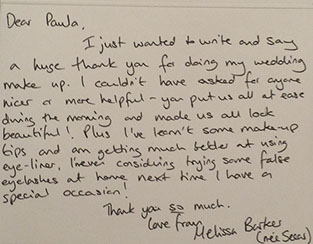 Dear Paula,
I just wanted to write and say
a huge thank you for doing my wedding
make up. I couldn't have asked for anyone
nicer or more helpful - you put us all at ease
during the morning and made us all look
beautiful! Plus I've learn't some make-up
tips and am getting much better at using
eye-liner, I'm even considering trying some false
eyelashes at home next time I have a
special occasion!
Thank you so much.
Love from
Melissa Barker
(née